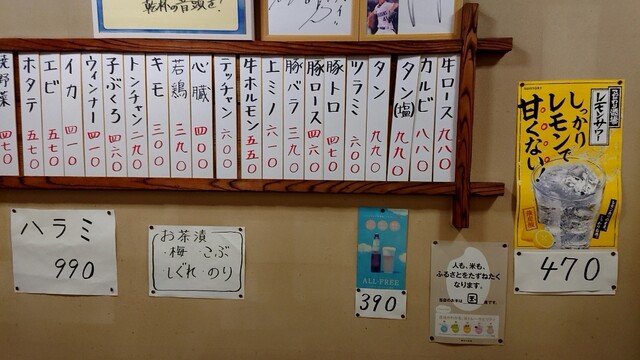 乾杯の音頭を!
牛ロース 九八〇
カルビ 八八〇
タン(塩) 九九〇
タン 九九〇
ツラミ 六〇〇
豚トロ 四七〇
豚ロース 四六〇
豚バラ 三九〇
上ミノ 六一〇
牛ホルモン 五五〇
テッチャン 六〇〇
心臓 四〇〇
若鶏 三九〇
キモ 三〇〇
トンチャン 四二〇
子ぶくろ 四六〇
ウィンナー 四一〇
イカ 四一〇
エビ 五七〇
ホタテ 五七〇
焼野菜 四七〇
ハラミ
990
お茶漬
・梅 ・こぶ
しぐれ・のり
ALL-FREE
390
人も、米も、
ふるさとをたずねたく
なります。
SUNTORY
こだわり酒場
レモンサワー
しっかり
レモンで
甘くない!
470